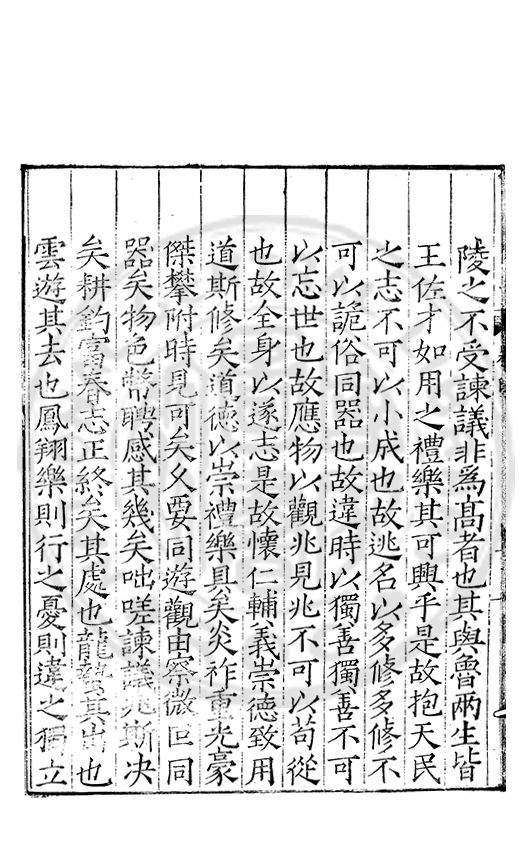 陵之不受諫議非爲高者也其與魯兩生皆
王佐才如用之禮樂其可興乎是故抱天民
之志不可以小成也故逃名以多修多修不
可以詭俗同器也故違時以獨善獨善不可
以忘世也故應物以觀兆見兆不可以苟從
也故全身以遂志是故懷仁輔義崇德致用
道斯修矣道德以崇禮樂具矣炎祚重光豪
傑攀附時見可矣久要同遊觀由察微回同
器矣物色幣聘感其幾矣咄嗟諫議兆斯决
矣耕釣富春志正終矣其處也龍蟄其出也
雲遊其去也鳳翔樂則行之憂則違之獨立